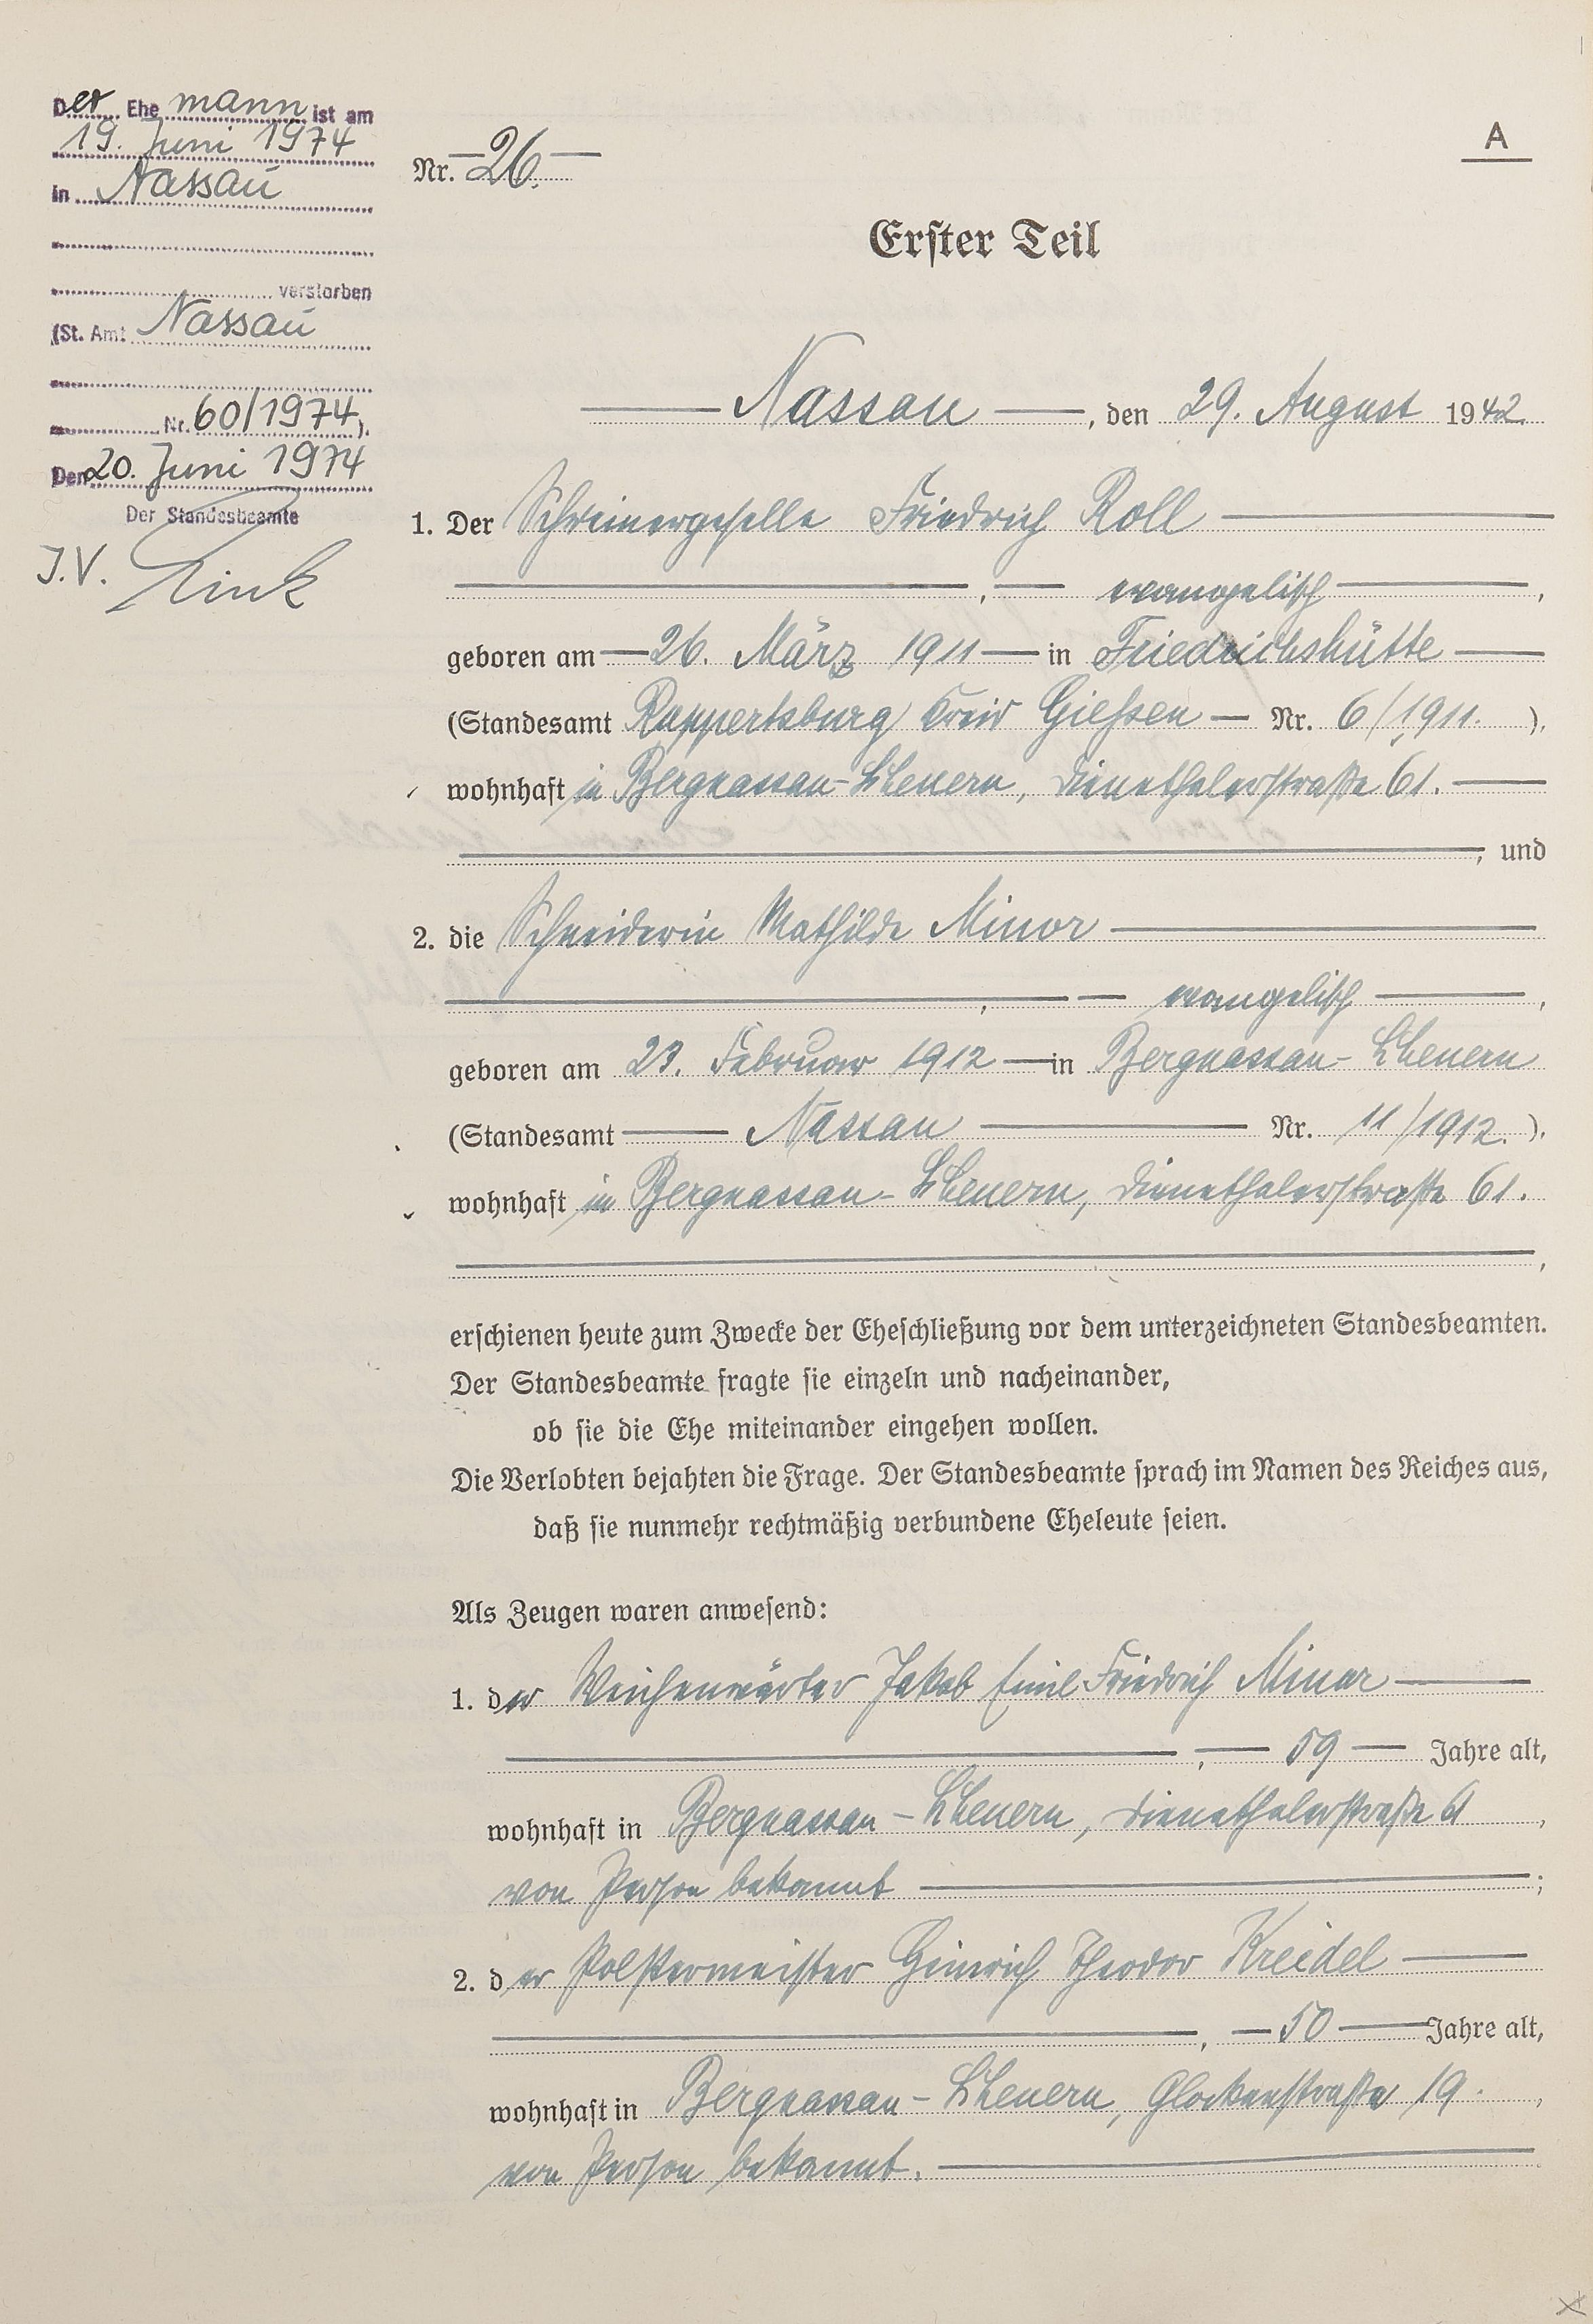 Der Ehemann ist am
19. Juni 1974
in Nassau
verstorben
(St. Amt Nassau
Nr. 60/1974).
Den 20. Juni 1974
Der Standesbeamte
J.V. Link
A
Nr. 26.
Erster Teil
Nassau, den 29. August 1942.
1. Der Schreinergeselle Friedrich Roll
, evangelisch,
geboren am 26. März 1911 in Friedrichshütte
(Standesamt Ruppertsburg Kreis Giessen Nr. 6/1911.),
wohnhaft in Bergnassau-Scheuern, Dienethalerstraße 61.
, und
2. die Schneiderin Mathilde Minor
, evangelisch,
geboren am 23. Februar 1912 in Bergnassau-Scheuern
(Standesamt Nassau Nr. 11/1912.),
wohnhaft in Bergnassau-Scheuern, Dienethalerstraße 61.
,
erschienen heute zum Zwecke der Eheschließung vor dem unterzeichneten Standesbeamten.
Der Standesbeamte fragte sie einzeln und nacheinander,
ob sie die Ehe miteinander eingehen wollen.
Die Verlobten bejahten die Frage. Der Standesbeamte sprach im Namen des Reiches aus,
daß sie nunmehr rechtmäßig verbundene Eheleute seien.
Als Zeugen waren anwesend:
1. der Weichenwärter Jakob Emil Friedrich Minor
, 59 Jahre alt,
wohnhaft in Bergnassau-Scheuern, Dienethalerstraße 61,
von Person bekannt;
2. der Polstermeister Heinrich Theodor Kreidel
, 50 Jahre alt,
wohnhaft in Bergnassau-Scheuern, Glockenstraße 19.,
von Person bekannt.